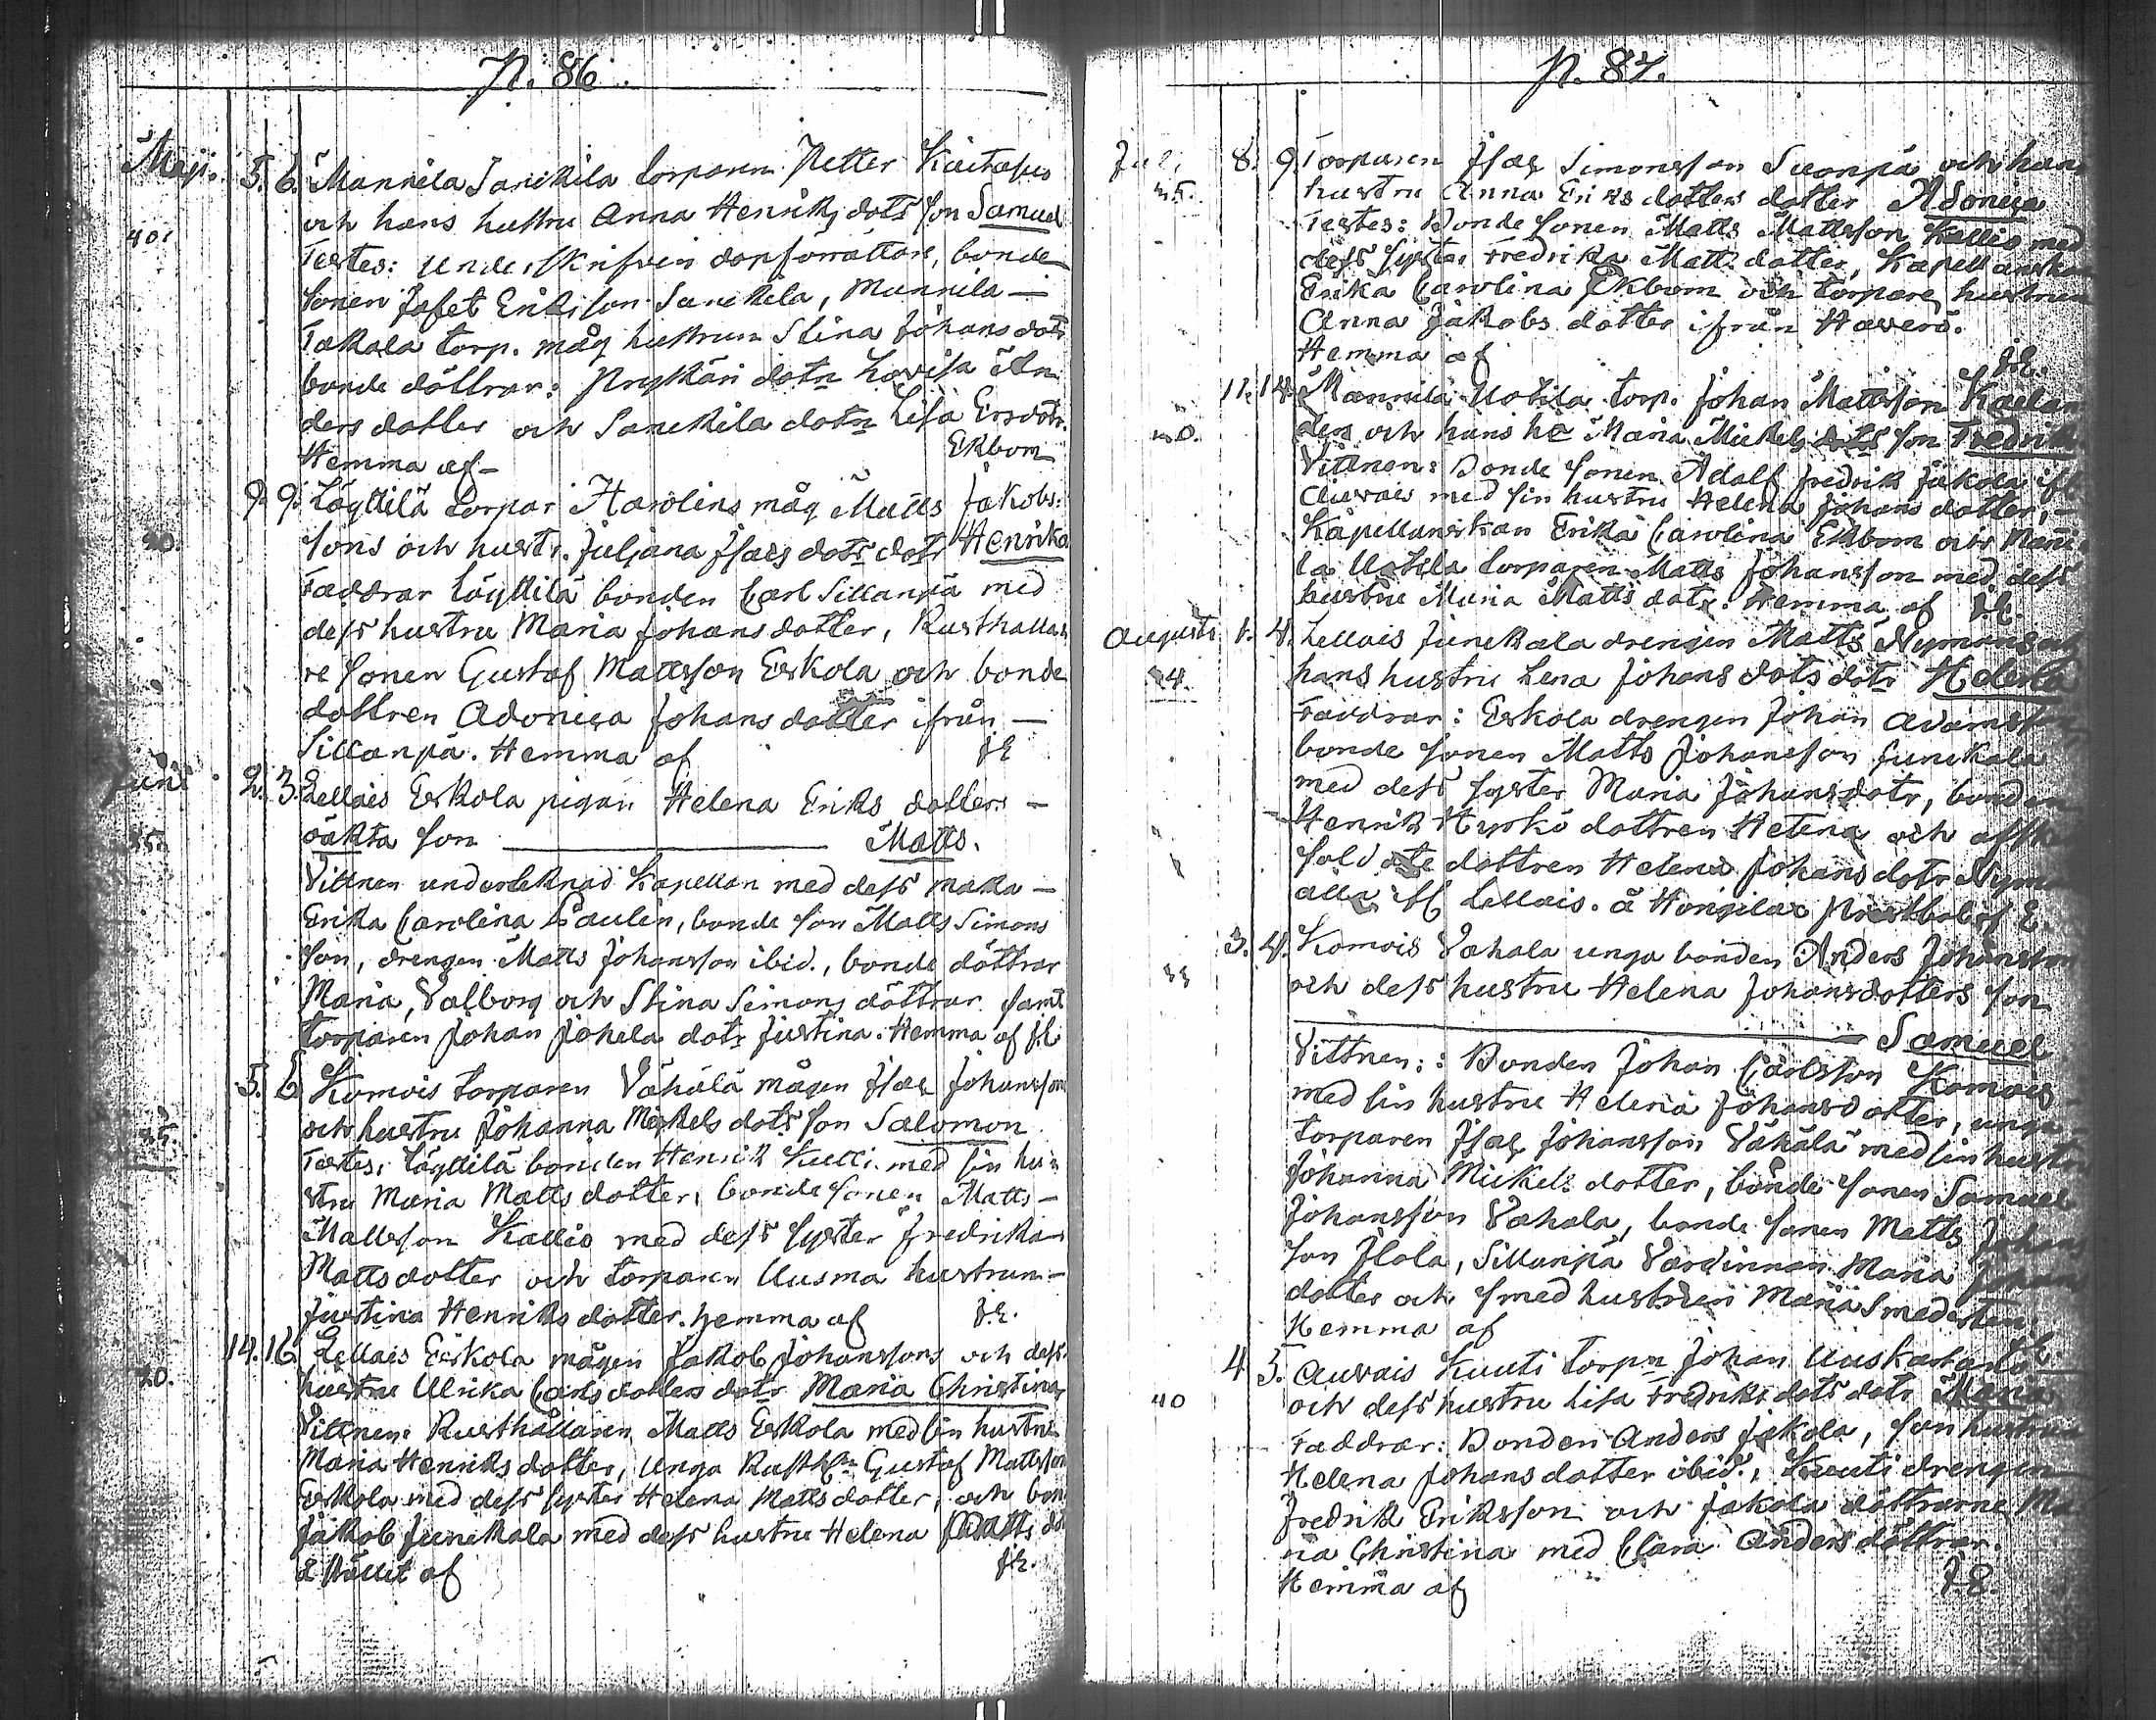 p. 86.
Maji. 5. 6. Mannila Sanekila torparen Petter Kaitasus
och hans hustru Anna Henriks dotr son Samuel
40. Testes: Underskrifven dopförrättare, bonde
Sonen Jafet Eriksson Sanekila, Mannila —
Takala torp. måg hustrun Stina Johans dotr
bonde döttrar: Prykäri dotn Lovisa An
ders dotter och Sanekila dotn Lisa Ersdotr.
Hemma af — Ekbom
9. 9. Löyttilä torpar Harolins måg Matts Jakobs
20. sons och hustr. Juljana Isacs dotr dotr Henrika
Faddrar Löyttilä bonden Carl Sillanpä med
dess hustru Maria Johans dotter, Rusthålla
re Sonen Gustaf Mattsson Eskola och bonde
dottren Adonisa Johans dotter ifrån —
Sillanpä. Hemma af J.E
Junii 2. 3. Lellais Eskola pigan Helena Eriks dotters —
25. oäkta son — Matts.
Vittnen underteknad Kapellan med dess maka —
Erika Carolina Paulin, bonde son Matts Simons
son, drengen Matts Johansson ibid., bonde döttrar
Maria, Valborg och Stina Simons döttrar samt
torparen Johan Johela dotr Justina. Hemma af J.E.
5. 6. Komois torparen Vähälä mågen Isac Johansson
25. och hustru Johanna Mickels dotr son Salomon
Testes: Löyttilä bonden Henrik Kulli med sin hu
stru Maria Matts dotter, bonde sonen Matts —
Mattsson Kallio med dess syster Fredrika
Matts dotter och torparen Uusma hustrun —
Justina Henriks dotter. hemma af J.E.
14. 16. Lellais Eskola mågen Jakob Johanssons och dess
20. hustru Ulrika Carls dotters dotr Maria Christina
Vittnen: Rusthållaren Matts Eskola med sin hustru
Maria Henriks dotter, unga Rusth:n Gustaf Mattsson
Eskola med dess syster Helena Matts dotter, och bon
Jakob Junekala med dess hustru Helena Matts do
å stället af J.E.
p. 87.
Juli 8. 9. Torparen Isac Simonsson Suonpä och han
25. hustru Anna Eriks dotters dotter Adonisa
Testes: Bonde Sonen Matts Mattsson Kallio med
dess syster Fredrika Matts dotter, Kapellanskan
Erika Carolina Ekbom och torpare hustrun
Anna Jakobs dotter ifrån Haverö.
Hemma af J.E.
11. 14. Mannila Uotila torp. Johan Mattsson Kaela
den och hans ha Maria Mickels son Fredrik
Vittnen: Bonde Sonen Adolf Fredrik Jakola ifr
Auvais med sin hustru Helena Johans dotter, —
Kapellanskan Erika Carolina Ekbom och Mani
la Uotila torparen Matts Johansson med dess
hustru Maria Matts dotr. Hemma af J.E.
Augusti 1. 4. Lellais Junekala drengen Matts Nyman och
24. hans hustru Lena Johans dotr dotr Helena
Faddrar: Eskola drengen Johan Adamsson
bonde sonen Matts Johansson Junekala
med dess syster Maria Johans dotr, bonden
Henrik Hyrkö dottren Helena och afsk
soldate dottren Helena Johans dotr Nyman
alla ifr Lellais. å Honjila Prestbol af E.
3. 4. Komois Vahala unga bonden Anders Johansson
och dess hustru Helena Johansdotters son
— Samuel
Vittnen: Bonden Johan Carlsson Komois
med sin hustru Helena Johansdotter, unga
torparen Isac Johansson Vähälä med sin hustru
Johanna Mickels dotter, bonde sonen Samuel
Johansson Vahala, bonde sonen Matts Johans
son Ilola, Sillanpä Värdinnan Maria Johans
dotter och smed hustrun Maria Smedsten.
Hemma af J.E.
4. 5. Auvais Kuuti torpn Johan Uuskartano
40 och dess hustru Lisa Fredriks dotr dotr Maria
Faddrar: Bonden Anders Jakola, son hustrun
Helena Johans dotter ibid., Kuuti drengen
Fredrik Eriksson och Jakola döttrarne Ma
ria Christina med Clara Anders döttrar.
Hemma af J.E.